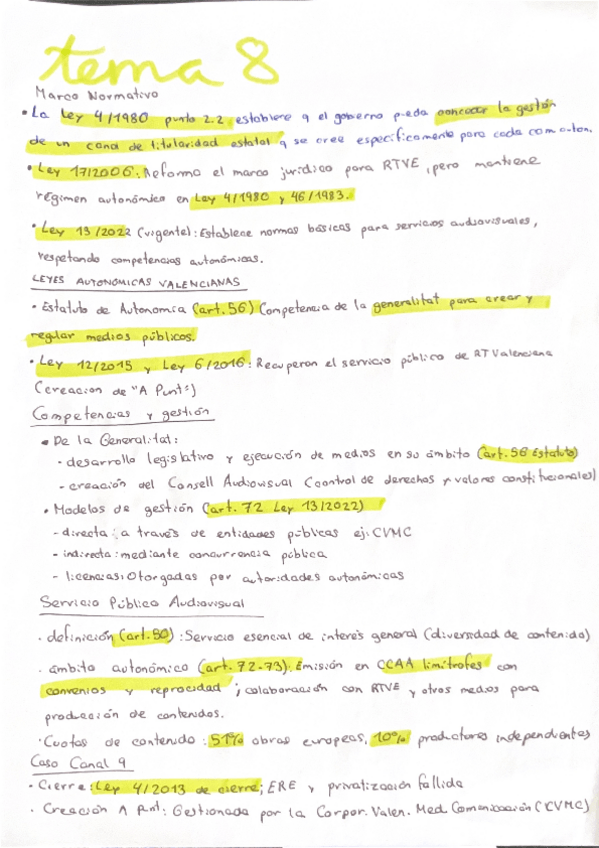 tema 8
Marco Normativo
• La Ley 4/1980 punto 2.2 establiene q el gobierno pueda conceder la gestión
de un canal de titularidad estatal q se cree específicamente para cada com. autón.
• Ley 17/2006: Reforma el marco jurídico para RTVE, pero mantiene
régimen autonómico en Ley 4/1980 y 46/1983.
• Ley 13/2022 (vigente): Establece normas básicas para servicios audiovisuales,
respetando competencias autonómicas.
LEYES AUTONÓMICAS VALENCIANAS
• Estatuto de Autonomía (art. 56) Competencia de la generalitat para crear y
regular medios públicos.
• Ley 12/2015 y Ley 6/2016: Recuperan el servicio público de RTValenciana
(creación de "A Punt")
Competencias y gestión
• De la Generalitat:
- desarrollo legislativo y ejecución de medios en su ámbito (art. 56 Estatuto)
- creación del Consell Audiovisual (control de derechos y valores constitucionales)
• Modelos de gestión (art. 72 Ley 13/2022)
- directa: a través de entidades públicas ej: CVMC
- indirecta: mediante concurrencia pública
- licencias: Otorgadas por autoridades autonómicas
Servicio Público Audiovisual
· definición (art. 50): Servicio esencial de interés general (diversidad de contenido)
· ámbito autonómico (art. 72-73). Emisión en CCAA limítrofes con
convenios y reprocidad; colaboración con RTVE y otros medios para
producción de contenidos.
· Cuotas de contenido: 51% obras europeas, 10% productores independientes
Caso Canal 9
• Cierre: Ley 4/2013 de cierre; ERE y privatización fallida
• Creación A Punt: Gestionada por la Corpor. Valen. Med. Comunicación (CVMC)